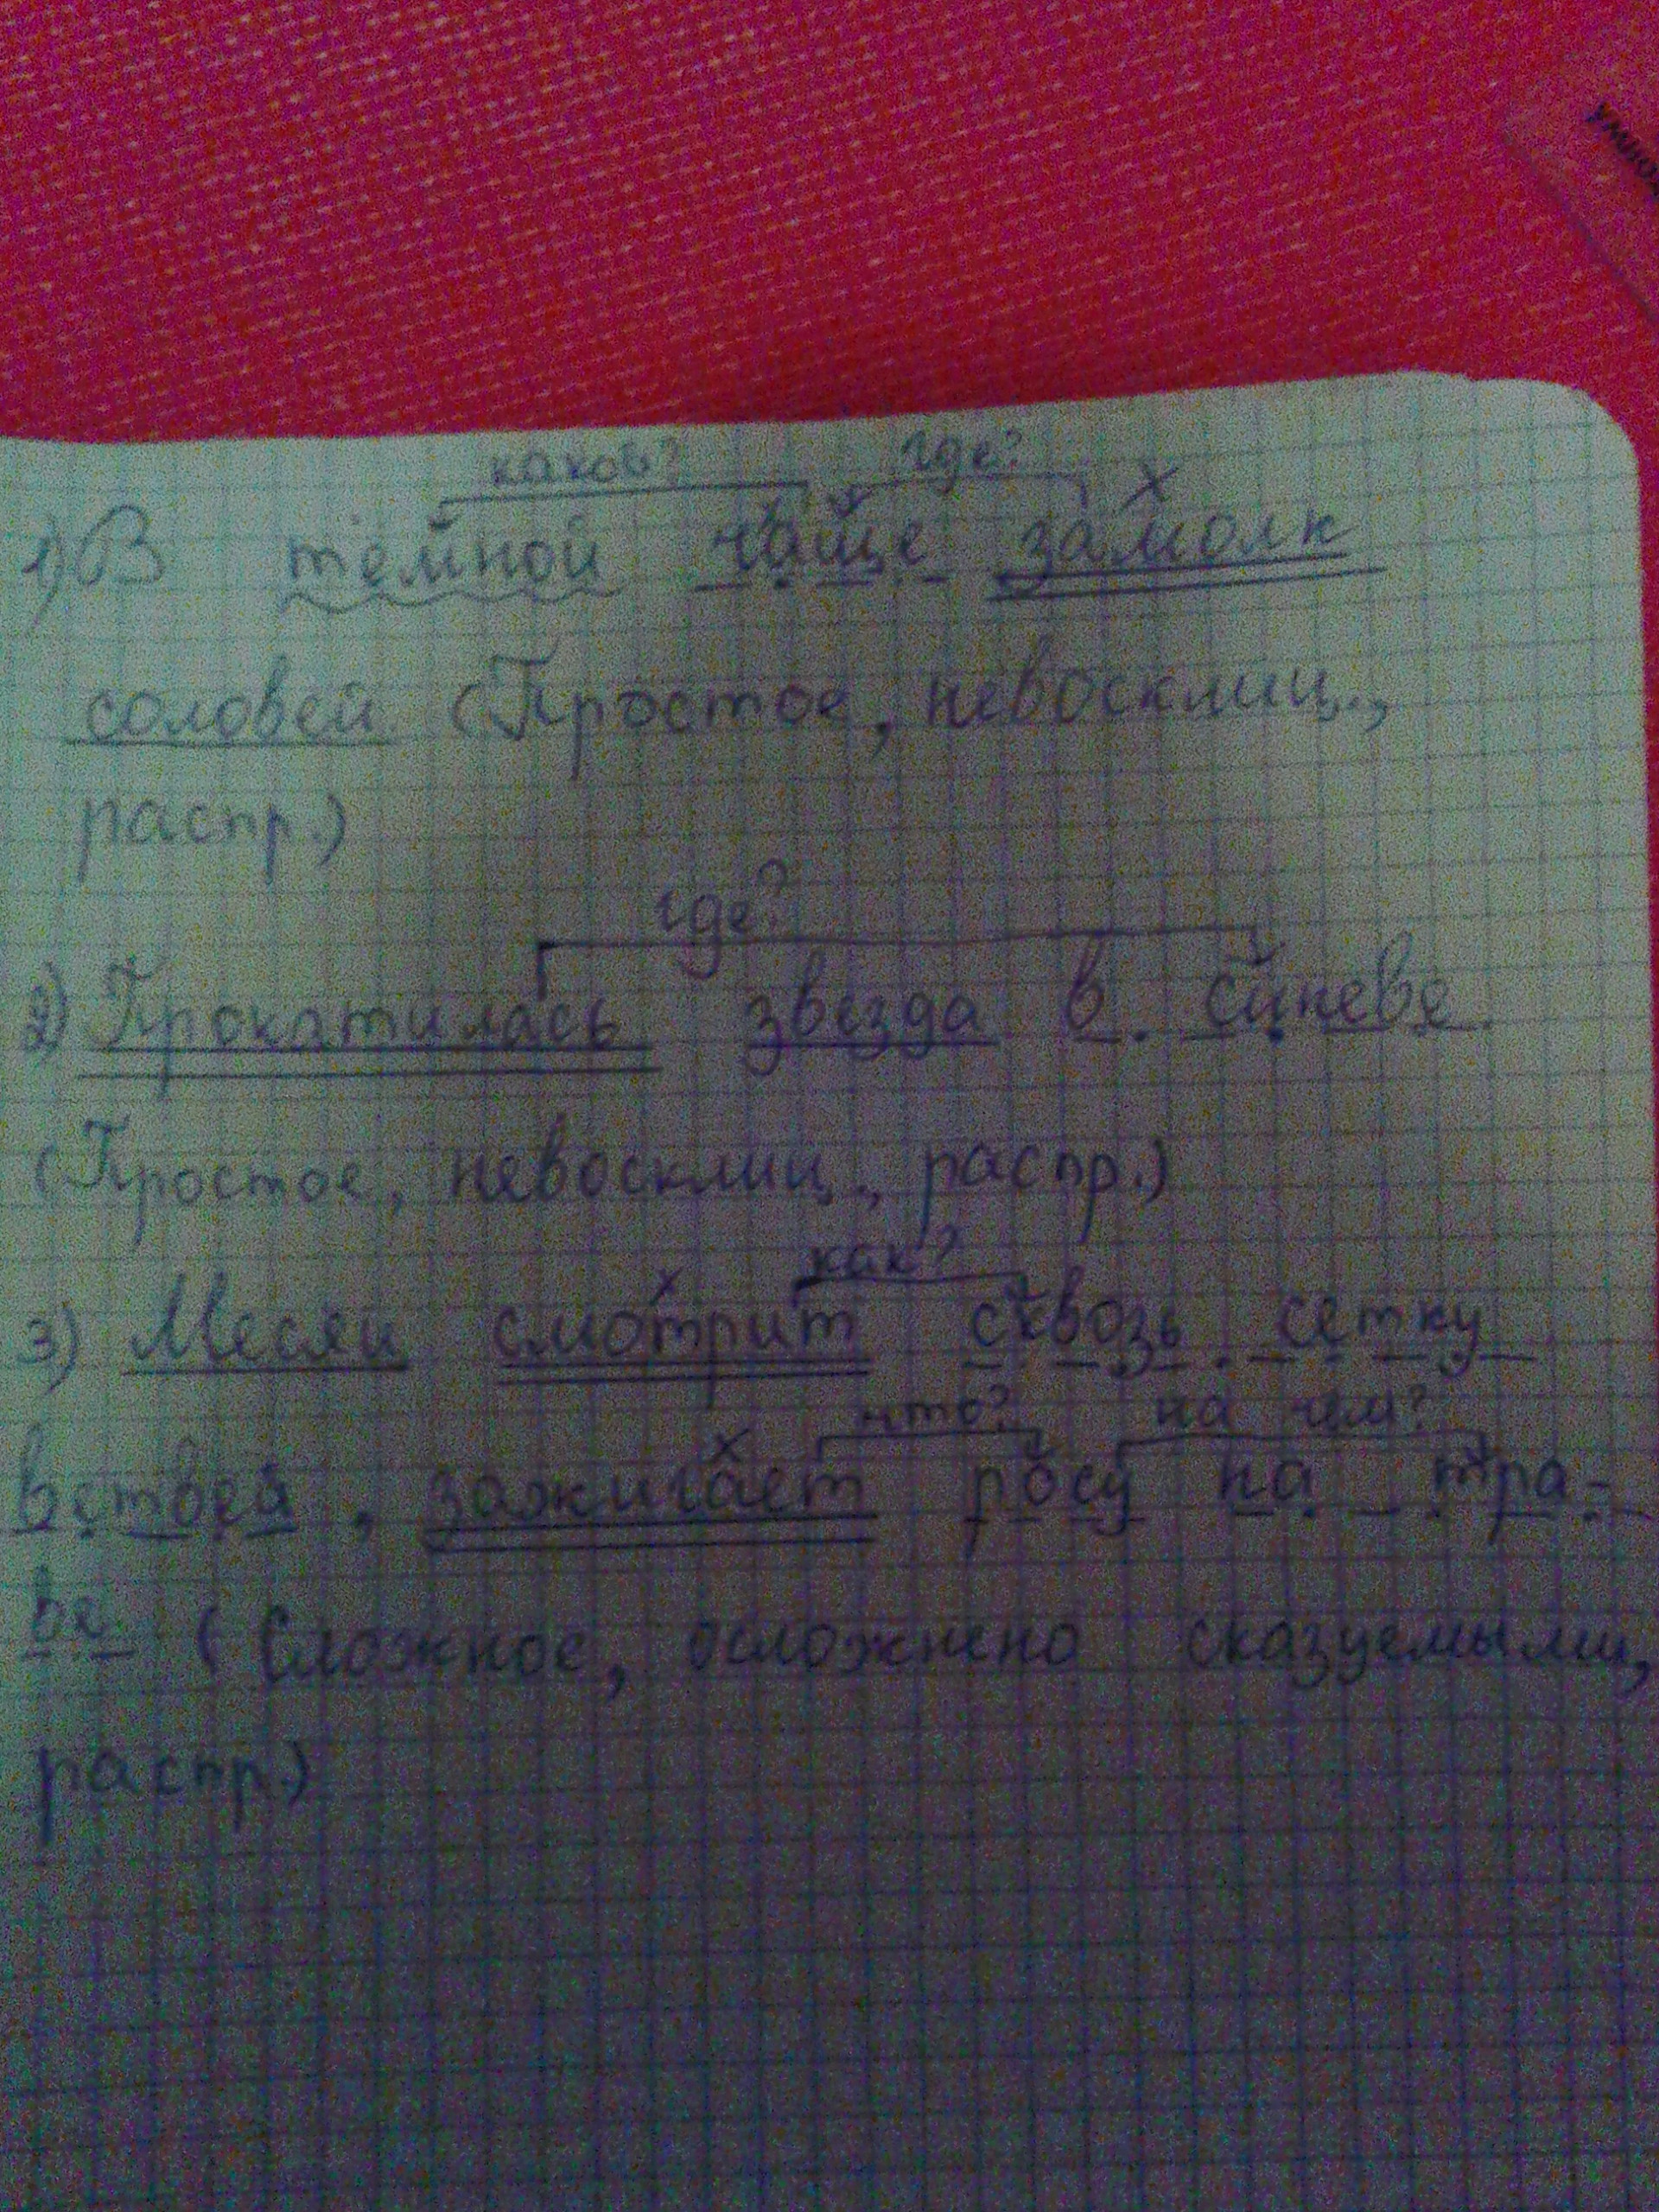 каков? где?
1) В тёмной чаще замолк
соловей (Простое, невосклиц.,
распр.)
где?
2) Прокатилась звезда в синеве.
(Простое, невосклиц., распр.)
как?
3) Месяц смотрит сквозь сетку
что? на чём?
ветвей, зажигает росу на тра-
ве. (Сложное, осложнено сказуемыми,
распр.)